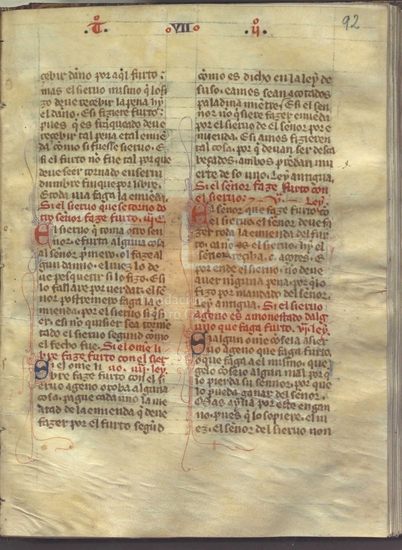 .T. VII .IJ.
92
cebir daño por aq̃l furto:
mas el sieruo mismo q̃ lo fi
zo deue recebir la pena ⁊ y
el daño. E si fiziere furto
pues q̃ es frãqueado deue
recebir tal pena ⁊ tal emiẽ
da como si fuesse sieruo. E
si el furto no fue tal por que
deue seer tornado en serui
dumbre finque por libre.
⁊ toda uia faga la emiẽda.
Si el sieruo que se torno do
tro señor faze furto. iij. L.
El sieruo q̃ toma otro sen
nor. ⁊ furta alguna cosa
al señor p̃mero. o l faze al
gun danno. el iuez lo de
ue pesquerir si lo fizo. E si
lo fallare por uerdat. el se
nor postremero faga la e
mienda. por el sieruo si qui
er. e si no quisier sea tor
tado el sieruo segund como
el fecho fue. Si el ome li
bre faze furto con el sier
uo. iiij. ley.
Si el ome li
bre faze furto con el si
eruo ageno o roba alguna
cosa. pague cada uno la me
atad de la emienda q̃ deue
fazer por el furto segũd
como es dicho en la ley de
suso. ⁊ ames sean açotados
paladina miẽtre. E si el sen
nor no q̃siere fazer emiẽda
por el sieruo
tal cosa. por q̃ deuan ser des
cabeçados. ambos prendan mu
erte de so uno. Ley antigua.
Si el señor faze furto con
el sieruo. V. Ley.
El señor que faze furto cõ
el sieruo. el señor deue fa
zer toda la emienda del fur
to. ca no es el sieruo. ⁊ y el
señor reciba. c. açotes. E
por ende el sieruo. no deue
auer ninguna pena. por q̃ lo
fizo por mandado del señor.
Ley antigua. Si el sieruo
ageno es amonestado dal
guno que faga furto. vj. ley.
Si algun ome conseia a sier
uo ageno que faga furto.
o que faga a el mismo. que
gelo conseio algun mal por q̃
lo pierda su sennor. por que
lo pueda ganar del señor.
O si as aptia por este engan
no. pues q̃ lo sopiere. el iu
ez. el señor del sieruo non